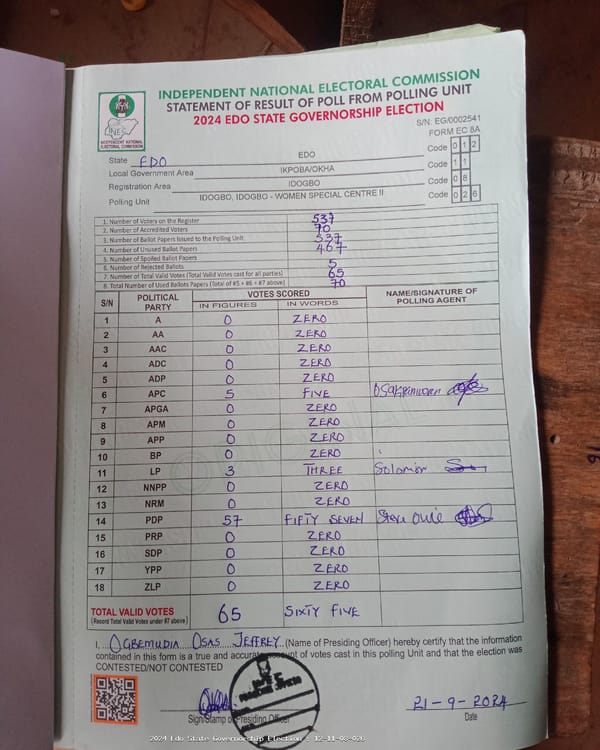 INDEPENDENT NATIONAL ELECTORAL COMMISSION
STATEMENT OF RESULT OF POLL FROM POLLING UNIT
2024 EDO STATE GOVERNORSHIP ELECTION
INEC
INDEPENDENT NATIONAL ELECTORAL COMMISSION
S/N: EG/0002541
FORM EC 8A
State EDO EDO Code 0 1 2
Local Government Area IKPOBA/OKHA Code 1 1
Registration Area IDOGBO Code 0 8
Polling Unit IDOGBO, IDOGBO - WOMEN SPECIAL CENTRE II Code 0 2 6
1. Number of Voters on the Register 537
2. Number of Accredited Voters 70
3. Number of Ballot Papers Issued to the Polling Unit 537
4. Number of Unused Ballot Papers 467
5. Number of Spoiled Ballot Papers
6. Number of Rejected Ballots 5
7. Number of Total Valid Votes (Total Valid Votes cast for all parties) 65
8. Total Number of Used Ballots Papers (Total of #5 + #6 + #7 above) 70
S/N POLITICAL PARTY VOTES SCORED NAME/SIGNATURE OF POLLING AGENT
IN FIGURES IN WORDS
1 A 0 ZERO
2 AA 0 ZERO
3 AAC 0 ZERO
4 ADC 0 ZERO
5 ADP 0 ZERO
6 APC 5 FIVE
7 APGA 0 ZERO
8 APM 0 ZERO
9 APP 0 ZERO
10 BP 0 ZERO
11 LP 3 THREE Solomon
12 NNPP 0 ZERO
13 NRM 0 ZERO
14 PDP 57 FIFTY SEVEN Steve
15 PRP 0 ZERO
16 SDP 0 ZERO
17 YPP 0 ZERO
18 ZLP 0 ZERO
TOTAL VALID VOTES 65 SIXTY FIVE
(Record Total Valid Votes under #7 above)
I, OGBEMUDIA OSAS JEFFREY (Name of Presiding Officer) hereby certify that the information
contained in this form is a true and accurate account of votes cast in this polling Unit and that the election was
CONTESTED/NOT CONTESTED
21-9-2024
Sign/Stamp of Presiding Officer Date
2024 Edo State Governorship Election : 12-11-08-026